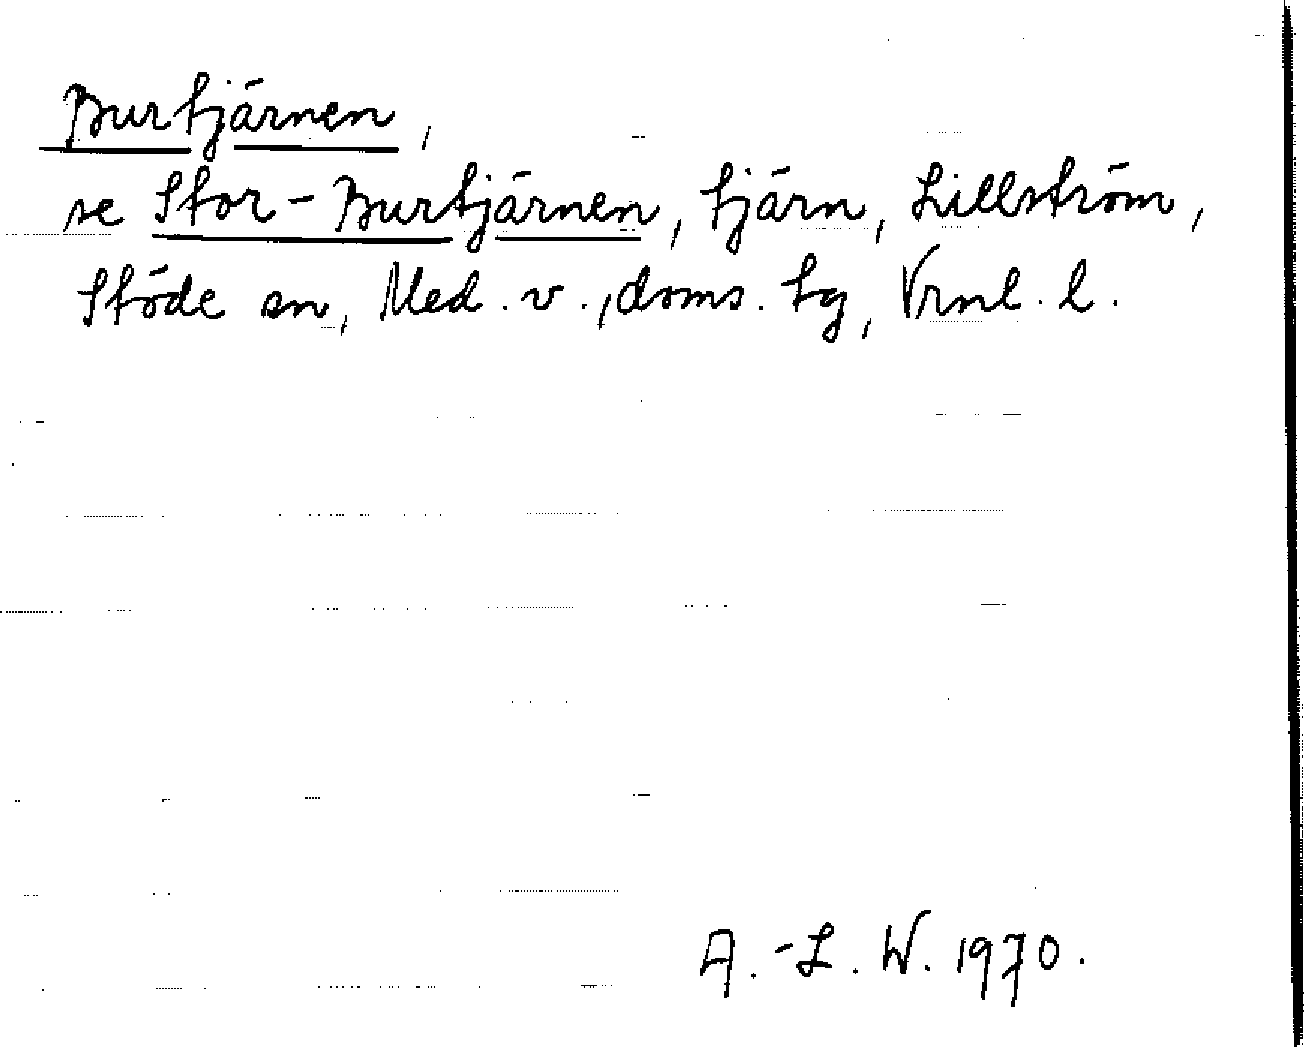 Burtjärnen,
se Stor-Burtjärnen, tjärn, Lillström,
Stöde sn, Med. v., doms. tg, Vrnl. l.
A.-L. W. 1970.